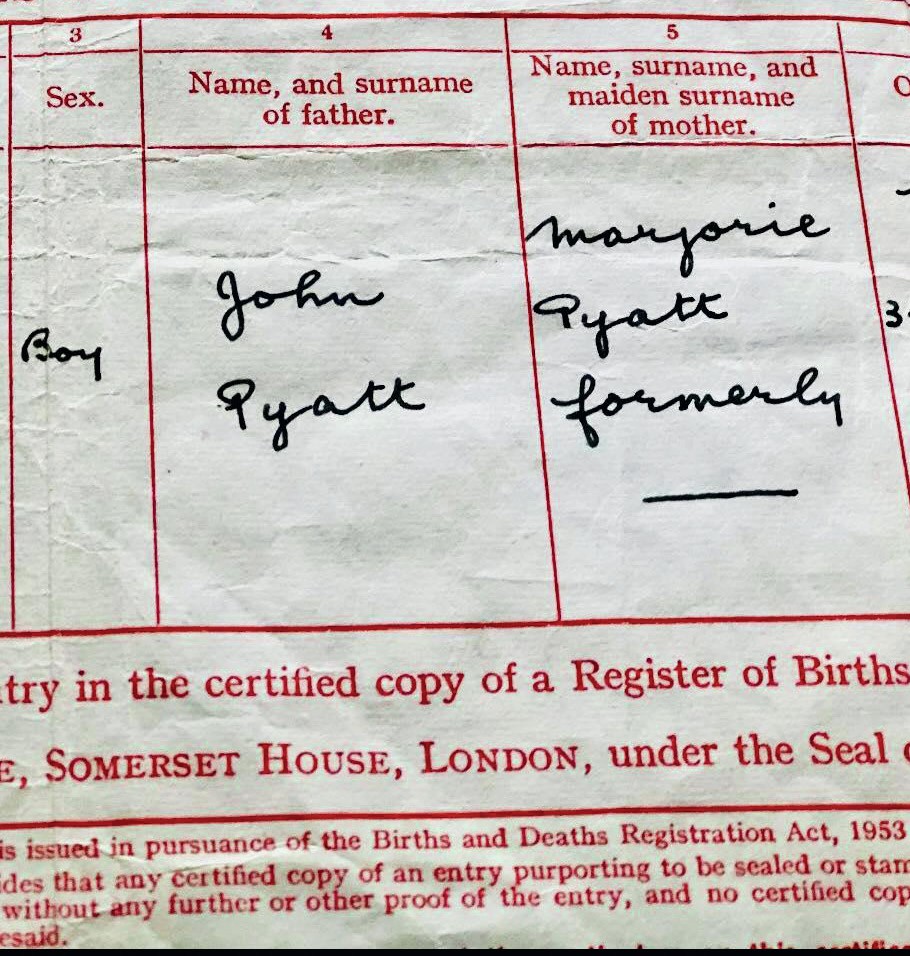 3
4
5
Sex.
Name, and surname
of father.
Name, surname, and
maiden surname
of mother.
Boy
John
Pyatt
Marjorie
Pyatt
formerly
—
3
try in the certified copy of a Register of Births
E, SOMERSET HOUSE, LONDON, under the Seal
is issued in pursuance of the Births and Deaths Registration Act, 1953
ides that any certified copy of an entry purporting to be sealed or stam
without any further or other proof of the entry, and no certified cop
esaid.